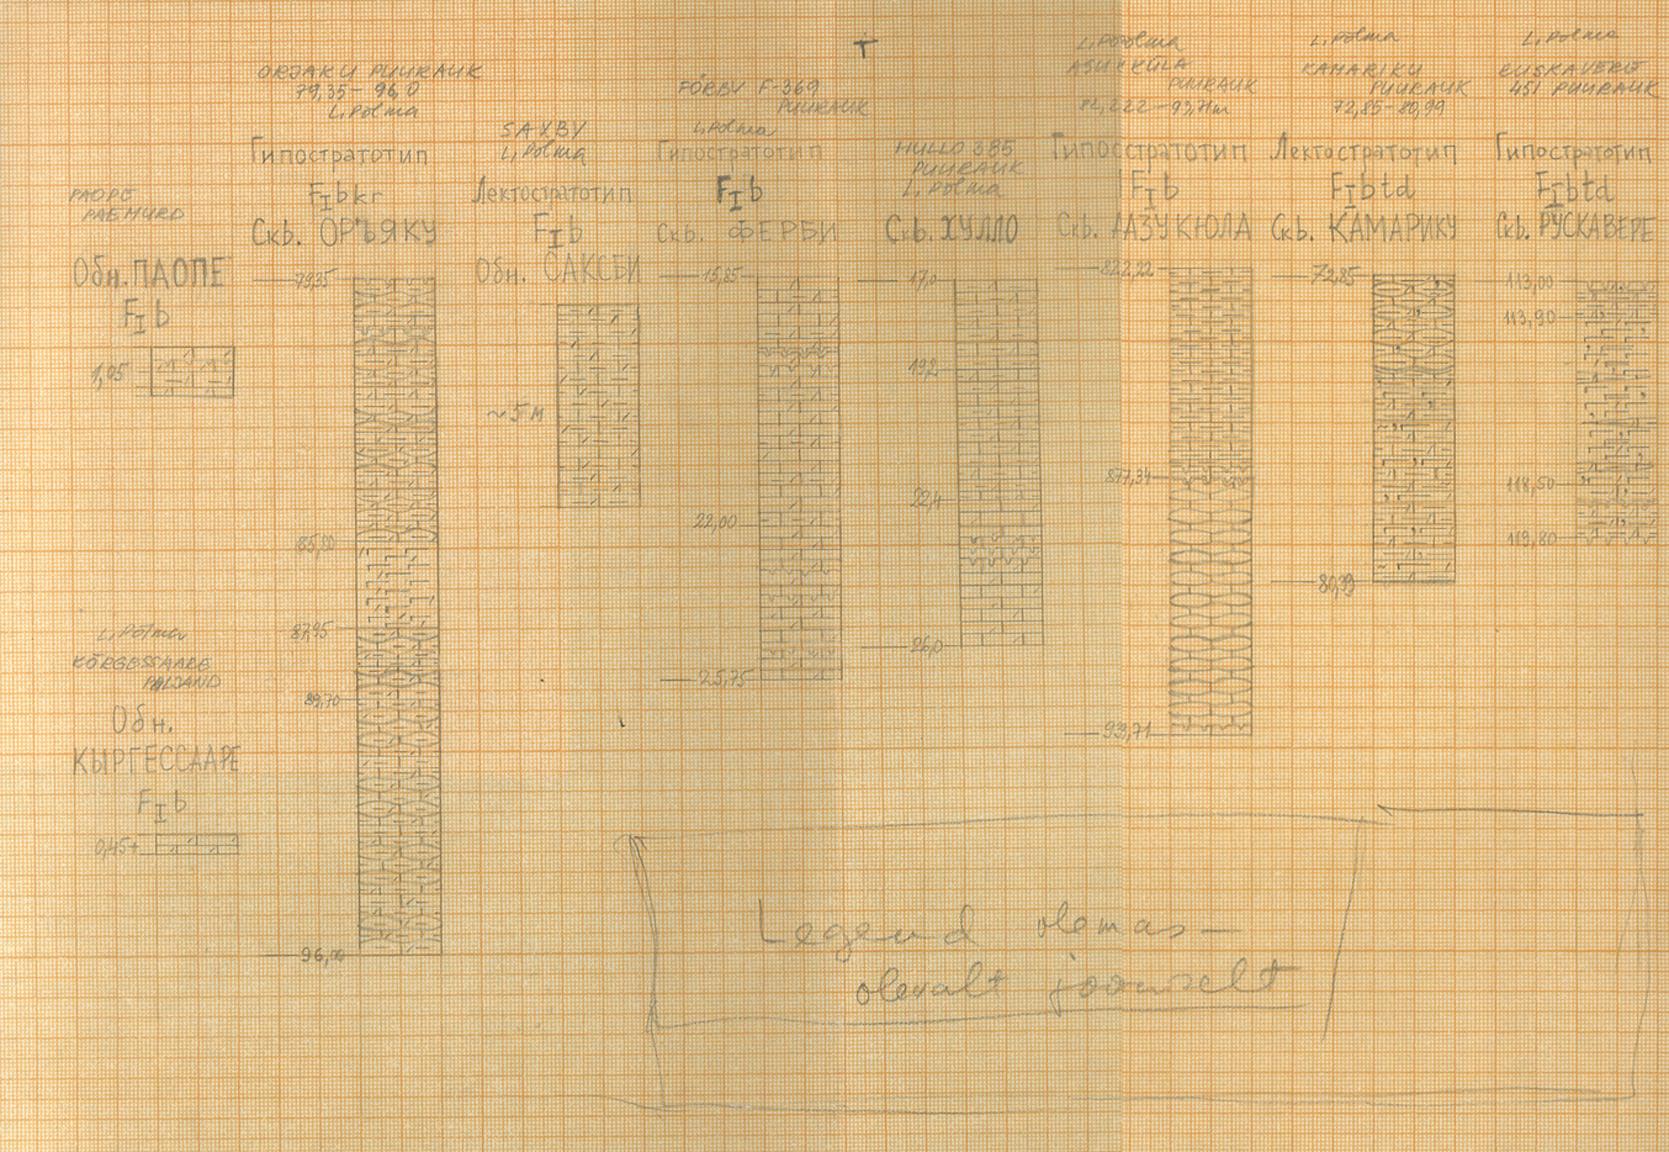 PAOPE
PAEMURD
Обн. ПАОПЕ
FIb
1,05
L. Põlma
KÕRGESSAARE
PALJAND
Обн.
КЫРГЕССААРЕ
FIb
0,45+
ORJAKU PUURAUK
79,35 – 96,0
L. Põlma
Гипостратотип
FIbkr
Скв. ОРЪЯКУ
79,35
85,80
87,95
89,70
96,00
SAXBY
L. Põlma
Лектостратотип
FIb
Обн. САКСБИ
~5 м
FÖRBY F-369
PUURAUK
L. Põlma
Гипостратотип
FIb
Скв. ФЕРБИ
15,85
22,00
25,75
T
HULLO 385
PUURAUK
L. Põlma
Скв. ХУЛЛО
17,0
19,2
22,4
26,0
L. Põlma
PUURAUK
Гипостратотип
FIb
Скв. АЗУКЮЛА
877,34
93,71
L. Põlma
KAMARIKU
PUURAUK
72,85 – 80,99
Лектостратотип
FIbtd
Скв. КАМАРИКУ
72,85
80,99
L. Põlma
451 PUURAUK
Гипостратотип
FIbtd
Скв. РУСКАВЕРЕ
113,00
113,90
118,50
119,80
Legend olemas–
olevalt jooniselt